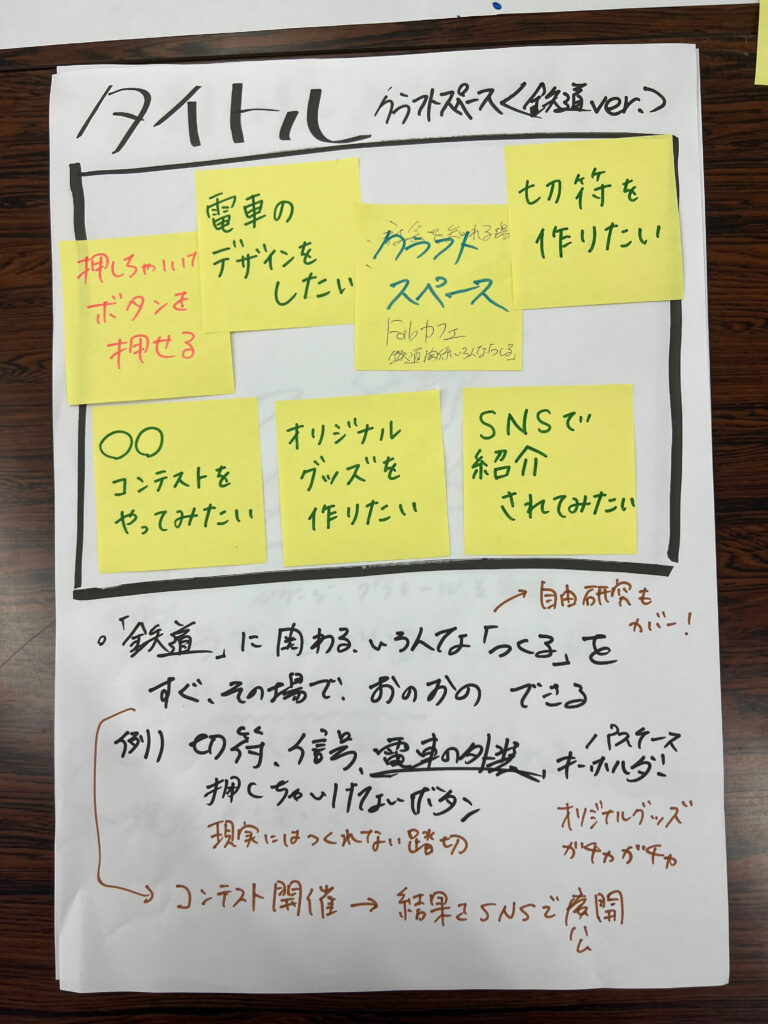 タイトル クラフトスペース<鉄道ver.>
押しちゃいけ
ボタンを
押せる
電車の
デザインを
したい
クラフト
スペース
Fabカフェ
鉄道関係いろんな「つくる」
切符を
作りたい
〇〇
コンテストを
やってみたい
オリジナル
グッズを
作りたい
SNSで
紹介
されてみたい
→自由研究も
カバー!
。「鉄道」に関わる、いろんな「つくる」を
すぐ、その場で、おのおの できる
例) 切符、信号、電車の外装、パスケース
キーホルダ!
押しちゃいけないボタン
現実にはつくれない踏切
オリジナルグッズ
ガチャガチャ
→ コンテスト開催 → 結果をSNSで展開
公